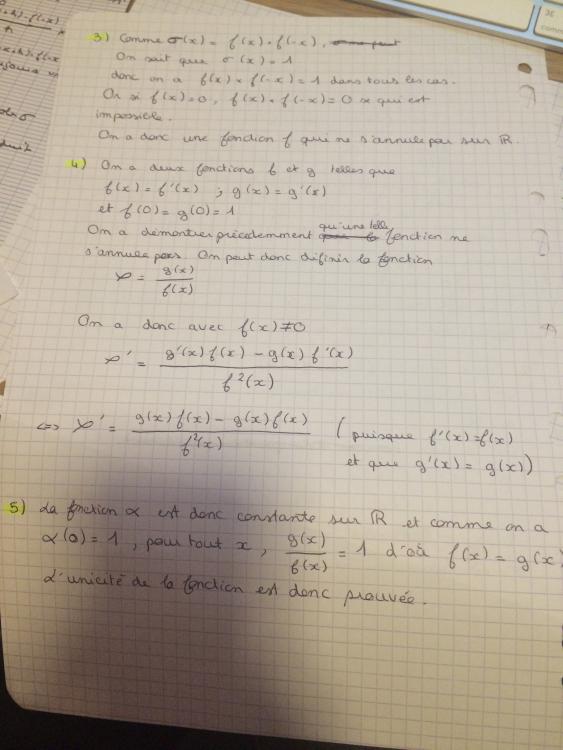 3) Comme σ(x) = f(x) × f(-x),
On sait que σ(x) = 1
donc on a f(x) × f(-x) = 1 dans tous les cas.
Or si f(x)=0, f(x) × f(-x) = 0 ce qui est
impossible.
On a donc une fonction f qui ne s'annule pas sur ℝ.
4) On a deux fonctions f et g telles que
f(x) = f'(x) ; g(x) = g'(x)
et f(0) = g(0) = 1
On a démontrer précédemment qu'une telle fonction ne
s'annule pas. On peut donc définir la fonction
φ = g(x) / f(x)
On a donc avec f(x) ≠ 0
φ' = g'(x) f(x) - g(x) f'(x) / f²(x)
⇔ φ' = g(x) f(x) - g(x) f(x) / f²(x) (puisque f'(x) = f(x)
et que g'(x) = g(x))
5) La fonction α est donc constante sur ℝ et comme on a
α(0) = 1, pour tout x, g(x) / f(x) = 1 d'où f(x) = g(x)
L'unicité de la fonction est donc prouvée.